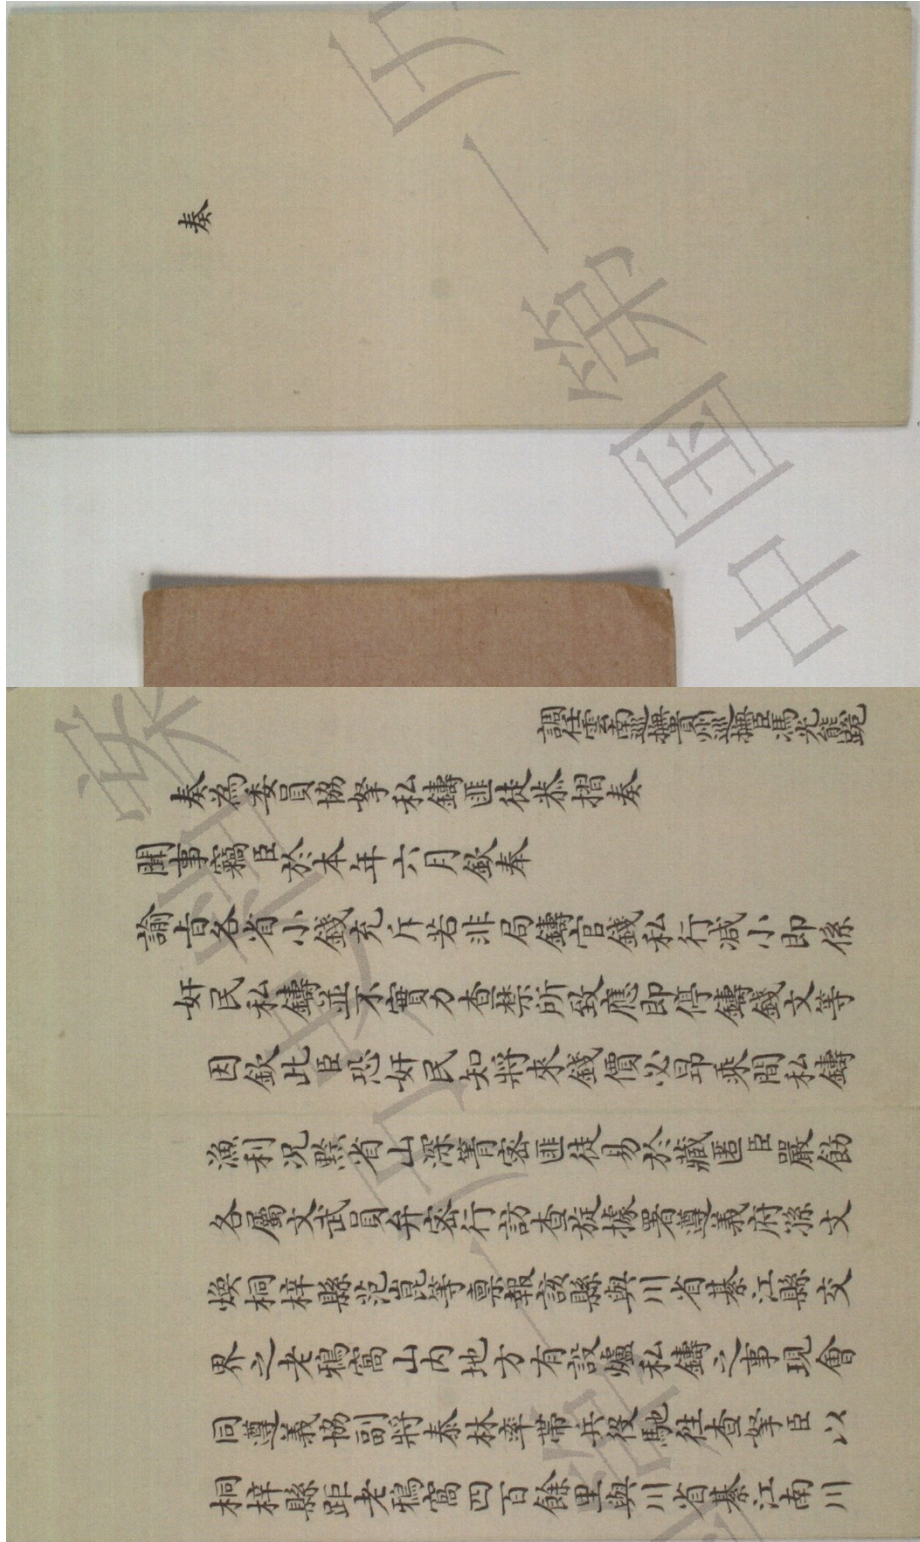 奏
調任雲南巡撫貴州巡撫臣馮光熊跪
奏為委員協拏私鑄匪徒恭摺奏
聞事竊臣於本年六月欽奉
諭旨各省小錢充斥若非局鑄官錢私行減小即係
奸民私鑄並不實力查禁所致應即停鑄錢文等
因欽此臣恐奸民知將來錢價必昂乘間私鑄
漁利況黔省山深箐密匪徒易於藏匿臣嚴飭
各屬文武員弁密行訪查旋據署遵義府孫文
煥桐梓縣范崑等稟報該縣與川省綦江縣交
界之老鴉窩山內地方有設爐私鑄之事現會
同遵義協副將泰林率帶兵役馳往查拏臣以
桐梓縣距老鴉窩四百餘里與川省綦江南川
中国第一历
中国第一历史档案